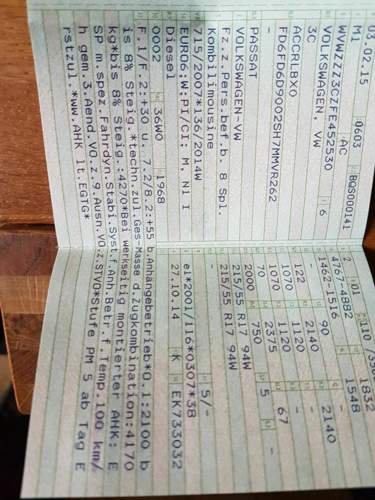 03.02.15 0603 BQS000141
M1 AC
WVWZZZ3CZFE452530 6
VOLKSWAGEN, VW
3C
ACCRLBX0
FD6FD6D9002SH7MMVR262
PASSAT
VOLKSWAGEN-VW
Fz.z.Pers.bef.b. 8 Spl.
Kombilimousine
715/2007*136/2014W
EURO6;W.PI/CI; M, N1 I
Diesel
0002 36W0 1968
2 01 110
4767-4882 1832
1462-1516 90 1548
- 2140 2140
122 1120 -
1070 1120 67
1070 2375 -
70 750 5 -
2000
215/55 R17 94W
215/55 R17 94W
5/-
e1*2001/116*0307*38
27.10.14 K EK733032
F.1/F.2:+30 u. 7.2/8.2:+55 b.Anhängebetrieb*O.1:2100 b
is 8% Steig.*techn.zul.Ges-Masse d.Zugkombination:4170
ks*bis 8% Steig.:4270*Bei werkseitig montierter AHK: E
SP m.spez.Fahrdyn.Stabi.Syst.f.Anh.Betr.f.Temp.100 km/
h gem.3.Aend.VO.z.9.Ausn.VO.z.STVO*Stufe PM 5 ab Tag E
rstzul.*ww.AHK lt.EGTG*